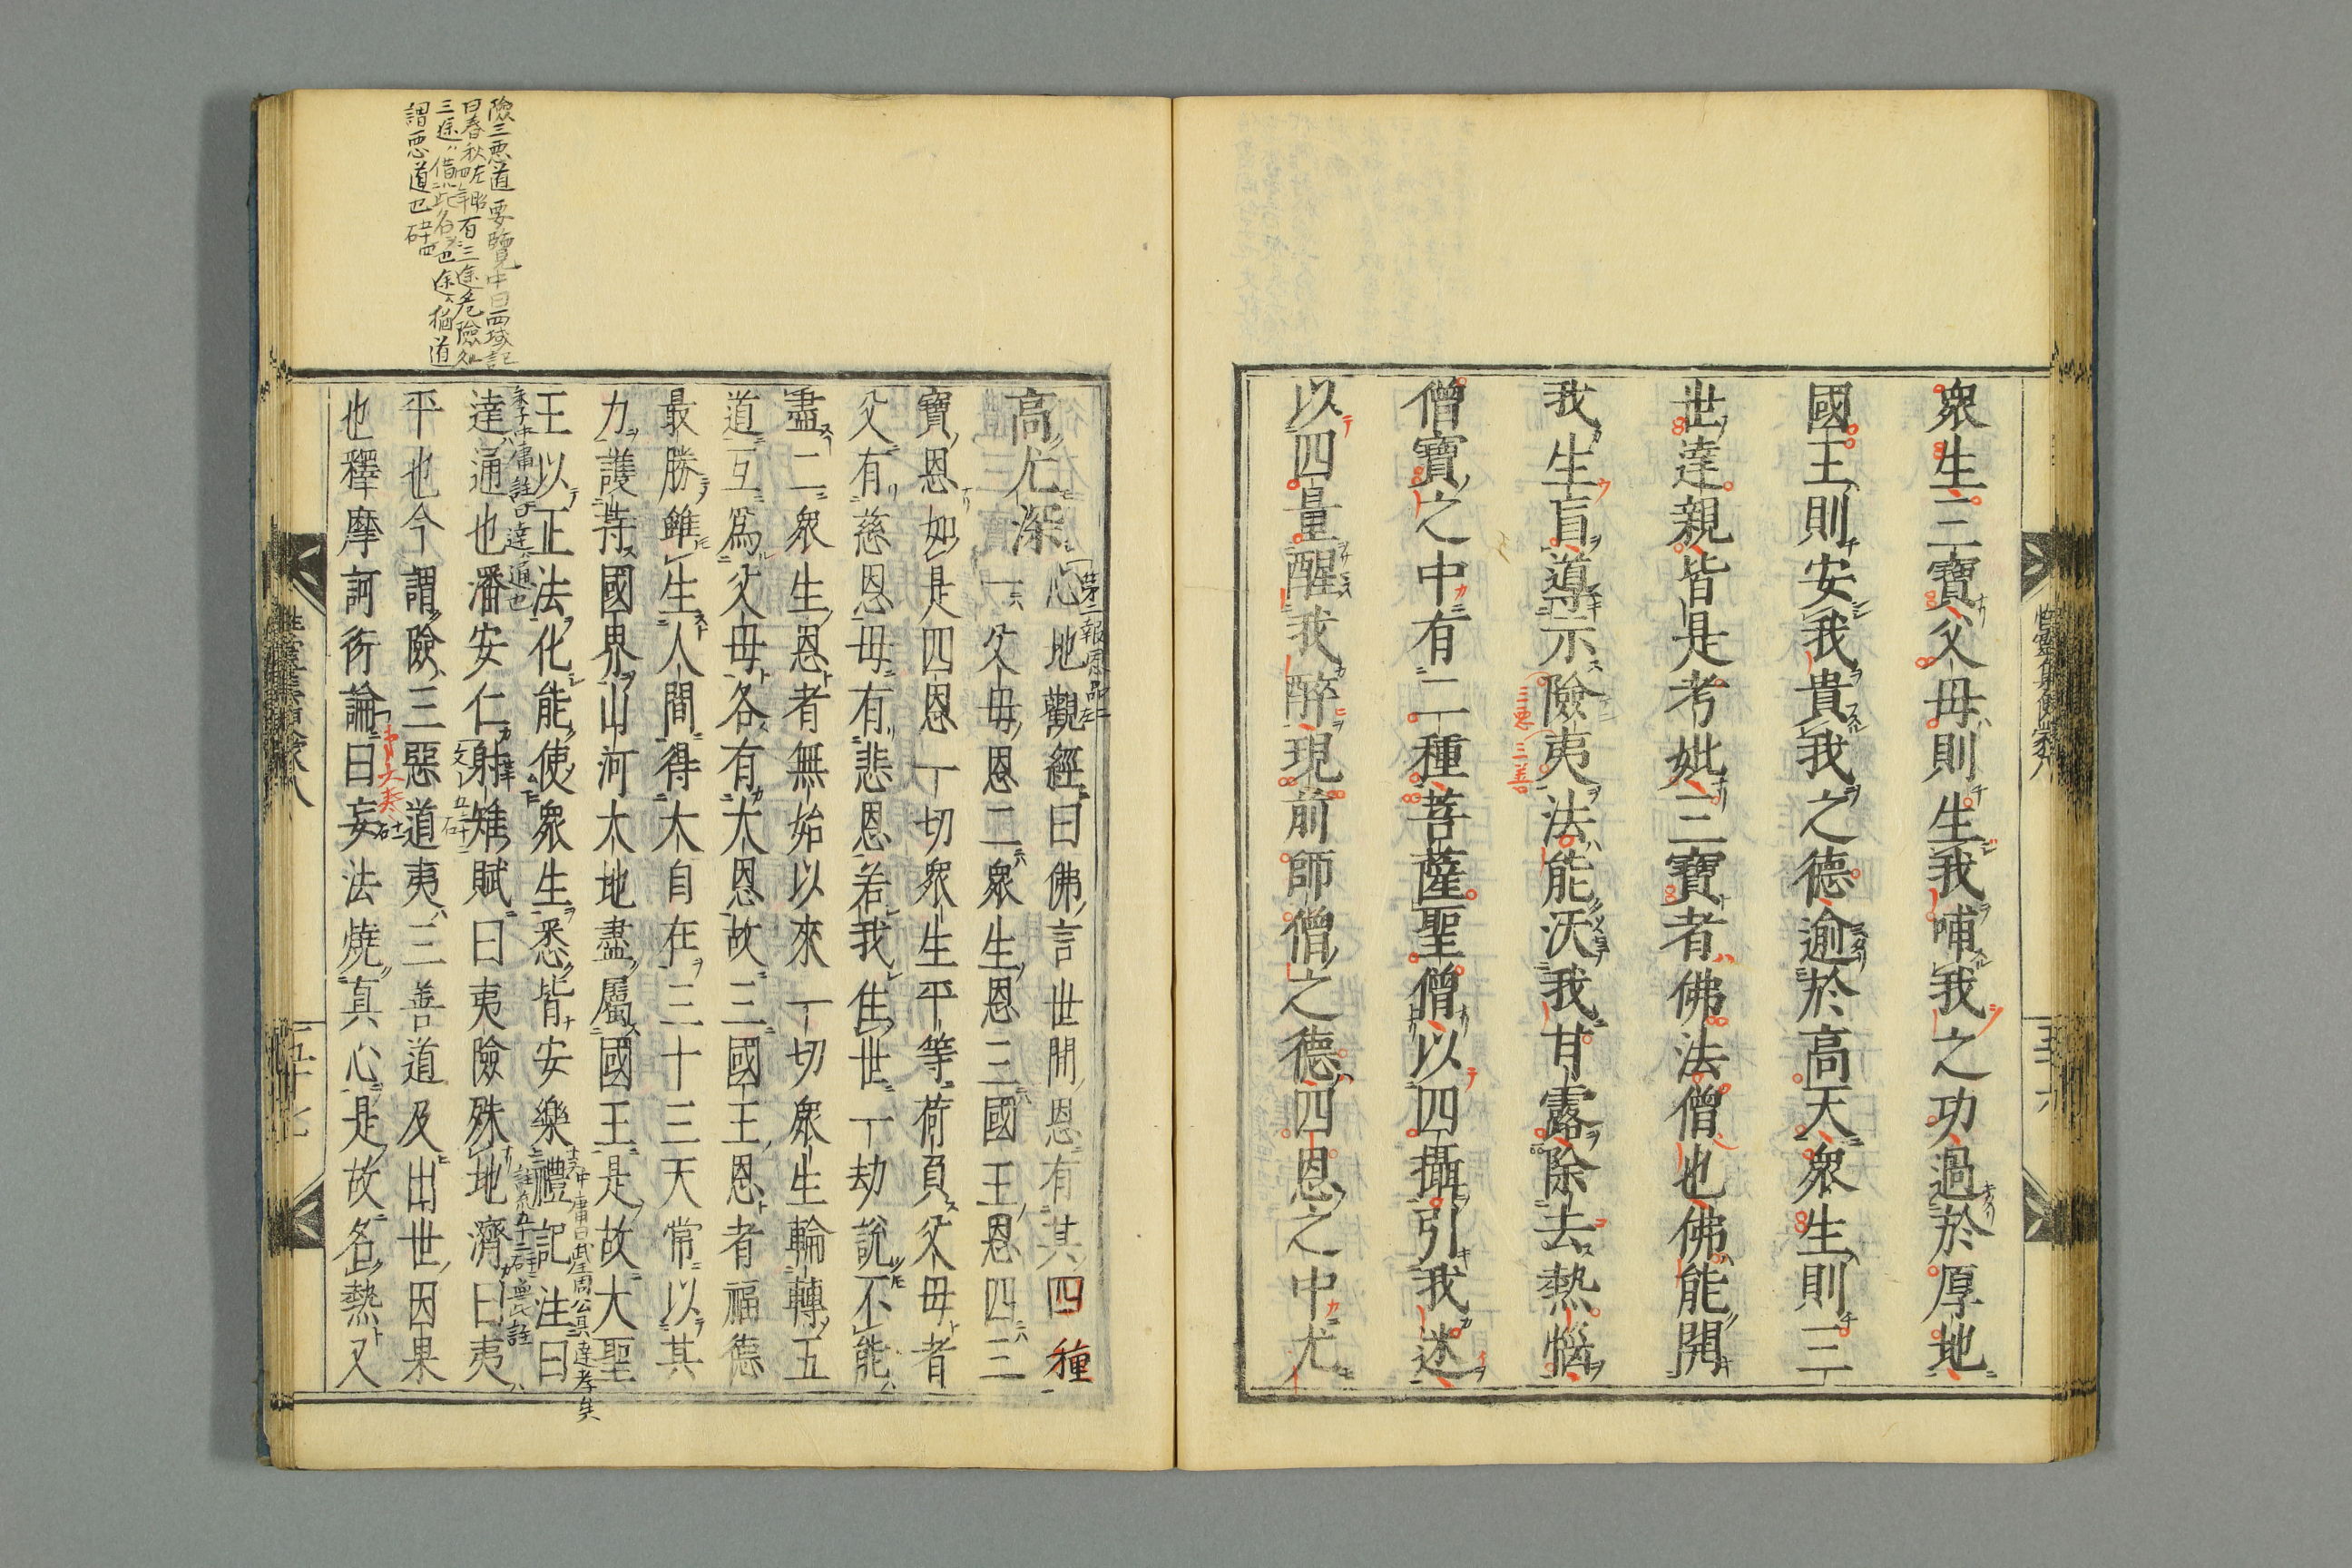 衆生三寶父母則生我哺我之功過於厚地
國王則安我貴我之德逾於高天衆生則三
世達親皆是考妣三寶者佛法僧也佛能開
我生盲導示險夷法能沃我甘露除去熱惱
三惡 三善
僧寶之中有二種菩薩聖僧以四攝引我迷
以四量醒我醉現前師僧之德四恩之中尤
高尤深心地觀經曰佛言世間恩有其四種
第二報恩品
一父母恩二衆生恩三國王恩四三
寶恩如是四恩一切衆生平等荷負父母者
父有慈恩母有悲恩若我住世一劫說不能
盡二衆生恩者無始以來一切衆生輪轉五
道互爲父母各有大恩故三國王恩者福德
最勝雖生人間得大自在三十三天常以其
力護持國界山河大地盡屬國王是故大聖
王以正法化能使衆生悉皆安樂禮記注曰
中庸曰武王周公其達孝矣
朱子中庸註曰達通也
達通也潘安仁射雉賦曰夷險殊地濟曰夷
平也今謂險三惡道夷三善道及出世因果
也釋摩訶衍論曰妄法燒真心是故名熱又
險三惡道 要覽中曰四域記
曰春秋左昭四年有三途危險処
三途借此名也途猶道
謂惡道也